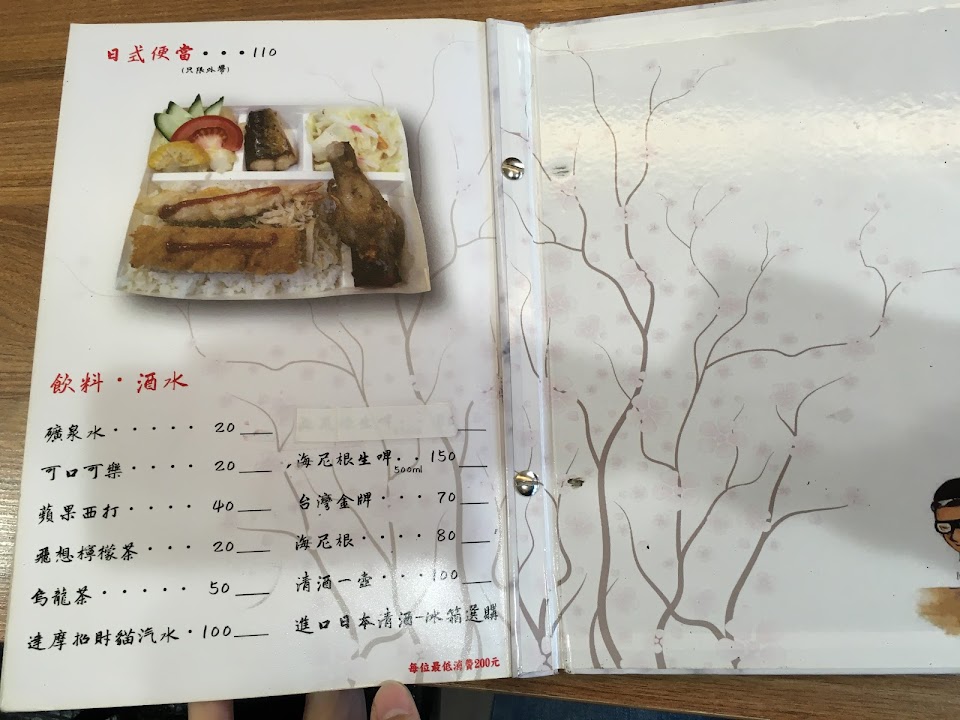 日式便當・・・110
(只限外帶)
飲料・酒水
礦泉水・・・・・20
可口可樂・・・・20
蘋果西打・・・・40
飛想檸檬茶・・・・20
烏龍茶・・・・・50
達摩招財貓汽水・100
海尼根生啤・・150
500ml
台灣金牌・・・70
海尼根・・・・80
清酒一壺・・・100
進口日本清酒-冰箱選購
每位最低消費200元